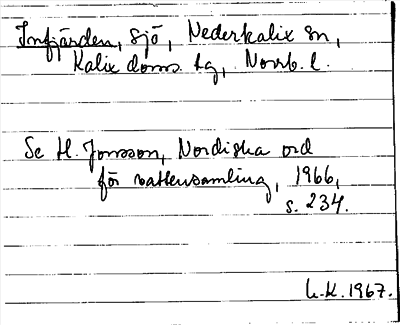 Infjärden, sjö, Nederkalix sn,
Kalix doms. lag, Norrb. l.
Se H. Jonsson, Nordiska ord
för vattensamling, 1966,
s. 234.
1967.